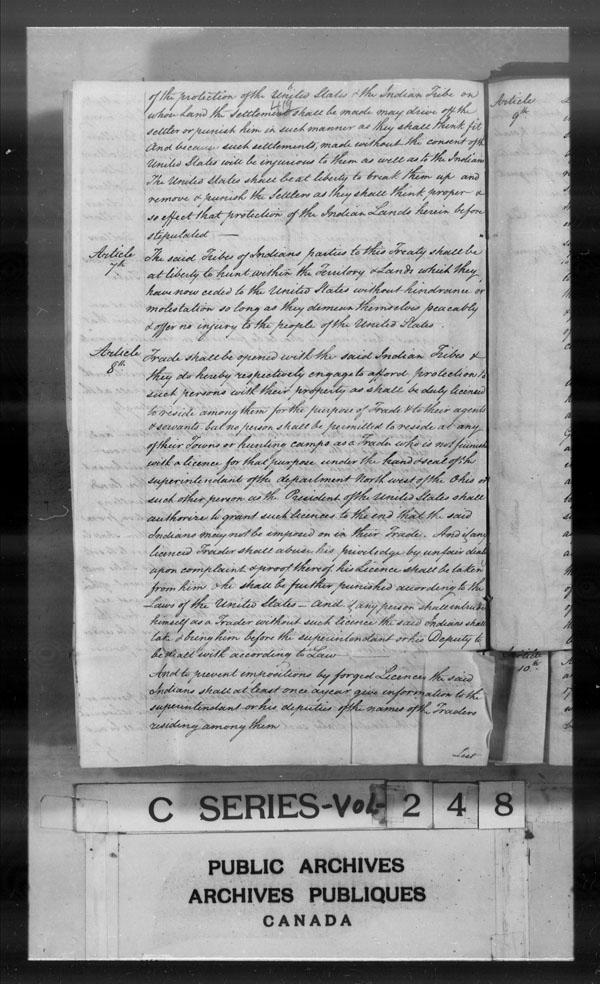 of the protection of the United States & the Indian Tribe on
419
whose Land the Settlement shall be made may drive off the
settler or punish him in such manner as they shall think fit
And because such settlements, made without the consent of the
United States will be injurious to them as well as to the Indians
The United States shall be at liberty to break them up and
remove & punish the Settlers as they shall think proper &
so effect that protection of the Indian Lands herein before
stipulated —
Article 7th
The said Tribes of Indians parties to this Treaty shall be
at liberty to hunt within the Territory & Lands which they
have now ceded to the United States without hindrance or
molestation so long as they demean themselves peacably
& offer no injury to the people of the United States.
Article 8th
Trade shall be opened with the said Indian Tribes &
they do hereby respectively engage to afford protection to
such persons with their property as shall be duly licenced
to reside among them for the purpose of Trade & to their agents
& servants but no person shall be permitted to reside at any
of their Towns or hunting camps as a Trader who is not furnish
with a licence for that purpose under the hand & seal of the
superintendant of the department North west of the Ohio or
such other person as the President of the United States shall
authorize to grant such licences to the end that the said
Indians may not be imposed on in their Trade. And if any
licenced Trader shall abuse his priviledge by unfair deal
upon complaint & proof thereof his Licence shall be taken
from him & he shall be further punished according to the
Laws of the United States — And if any person shall intrude
himself as a Trader without such licence the said Indians shall
take & bring him before the superintendant or his Deputy to
be dealt with according to Law
And to prevent impositions by forged Licences the said
Indians shall at least once a year give information to the
superintendant or his deputies of the names of the Traders
residing among them
Last
Article
9th
10th
C SERIES-VOL-248
PUBLIC ARCHIVES
ARCHIVES PUBLIQUES
CANADA